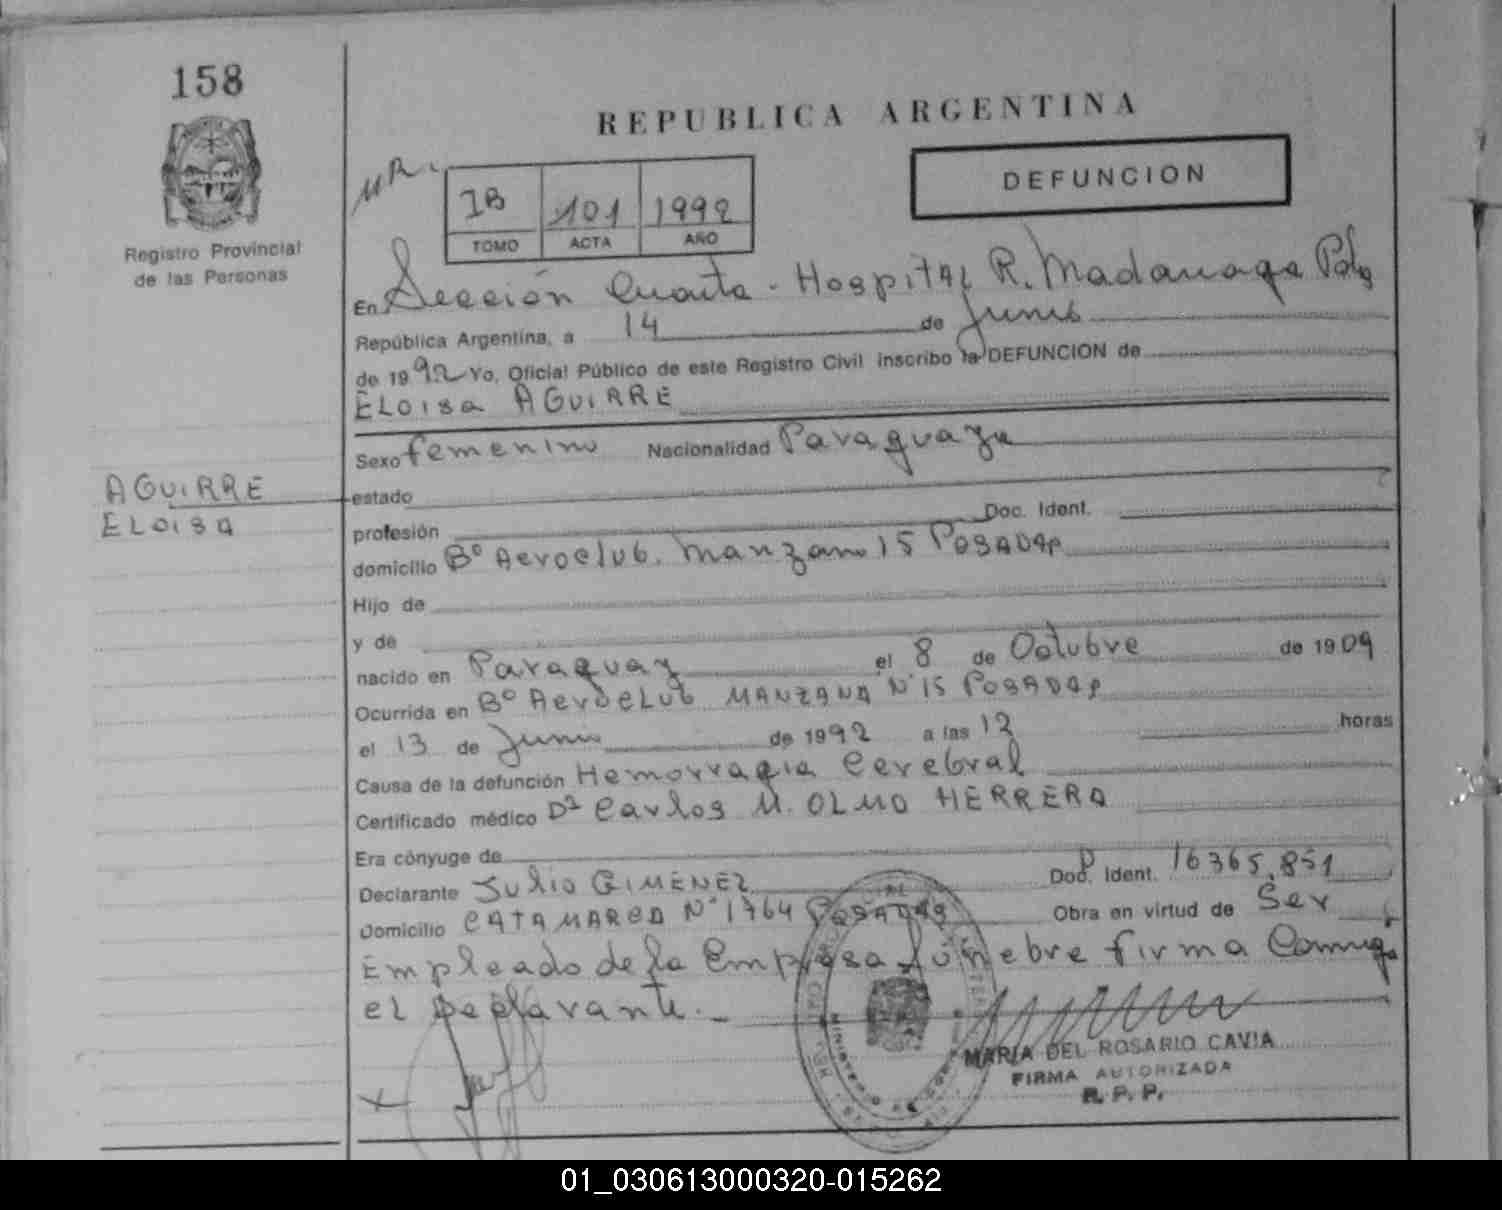 158
REPUBLICA ARGENTINA
DEFUNCION
Registro Provincial
de las Personas
1B 101 1992
TOMO ACTA AÑO
En Sección Cuarta - Hospital R. Madariaga Pdas
República Argentina, a 14 de Junio
de 1992 Yo, Oficial Público de este Registro Civil inscribo la DEFUNCION de
ELOISA AGUIRRE
Sexo femenino Nacionalidad Paraguaya
AGUIRRE
ELOISA
estado
profesión Doc. Ident.
domicilio Bº Aeroclub. Manzana 15 POSADAS
Hijo de
y de
nacido en Paraguay el 8 de Octubre de 1909
Ocurrida en Bº AeroCLub MANZANA Nº 15 POSADAS
el 13 de Junio de 1992 a las 12 horas
Causa de la defunción Hemorragia Cerebral
Certificado médico Dr Carlos M. OLMO HERRERA
Era cónyuge de
Declarante Julio GIMENEZ Doc. Ident. 16365.851
Domicilio CATAMARCA Nº 1764 POSADAS Obra en virtud de Ser
Empleado de la Empresa fúnebre firma Conmigo
el Declarante.-
MARIA DEL ROSARIO CAVIA
FIRMA AUTORIZADA
R. P. P.
01_030613000320-015262